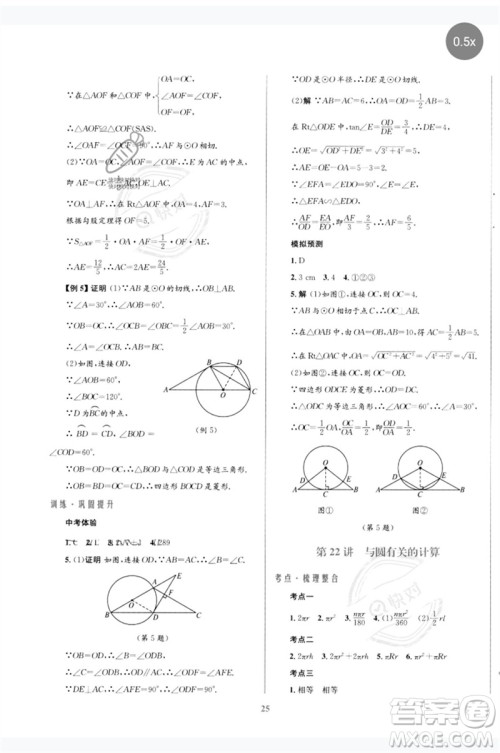 0.5x
OA=OC,
∵在△AOF 和△COF 中 ∠AOF=∠COF,
OF=OF,
∴△AOF≌△COF(SAS).
∴∠OAF=∠OCF=90°.∴AF 是⊙O 的切线.
(2)∵OA=OC,∠AOF=∠COF,∴E 为 AC 的中点,
即 AE=CE=½AC,OE⊥AC.
∵OA⊥AF,∴在 Rt△AOF 中,OA=4,AF=3,
根据勾股定理得 OF=5.
∵S△AOF=½·OA·AF=½·OF·AE,
∴AE=12/5.∴AC=2AE=24/5.
【例 5】证明 (1)∵AB 是⊙O 的切线,∴OB⊥AB.
∵∠A=30°,∴∠AOB=60°.
∵OB=OC,∴∠OCB=∠OBC.
∵∠AOB=∠OCB+∠OBC,
∴∠OCB=30°=∠A.∴AB=BC.
(2)如图,连接 OD,
∵∠AOB=60°,
∴∠BOC=120°.
∵D 为 BC 的中点,
∴BD=CD,∠BOD=
∠COD=60°.
(例 5)
∵OB=OD=OC,∴△BOD 与△COD 是等边三角形.
∴OB=BD=OC=CD.∴四边形 BOCD 是菱形.
训练·巩固提升
中考体验
5.(1)证明 如图,连接 OD.
(第 5 题)
∵OB=OD,∴∠ODB=∠OBD.
∵AB=AC,∴∠ABC=∠ACB.
∴∠ODB=∠ACB.∴AC∥OD.
∴∠DFC=∠ODF.∵DE⊥AC,
∴∠DFC=∠ODF=90°.∴OD⊥DE.
∵OD 是⊙O 半径,∴DE 是⊙O 的切线.
(2)解 ∵AB=AC=6,∴OA=OD=½AB=3.
在 Rt△ODE 中,tan∠E=OD/DE=3/4,∴DE=4.
∴OE=√(OD²+DE²)=√(3²+4²)=5.
∴EA=OE-OA=5-3=2.
∵∠EFA=∠EDO=90°,∠E=∠E,
∴△EFA∽△EDO.
∴AF/OD=EA/EO,即AF/3=2/5.∴AF=6/5.
模拟预测
1.D
2.3 cm 3.4 4.①②③
5.解 (1)如图①,连接 OC,则 OC=4.
∵AB 与⊙O 相切于点 C,∴OC⊥AB.
在△OAB 中,由 OA=OB,AB=10,得 AC=½AB=5.
在 Rt△AOC 中,OA=√(OC²+AC²)=√(4²+5²)=√41.
(2)如图②,连接 OC,则 OC=OD.
∵四边形 ODCE 为菱形,∴OD=DC.
∴△ODC 为等边三角形.∴∠AOC=60°.∴∠A=30°.
∴OC=½OA.∴OC/OA=½,即OD/OA=½.
图① 图②
(第 5 题)
第 22 讲 与圆有关的计算
考点·梳理整合
考点一
1.2πr 2.πr² 3.nπr/180 4.(1)nπr²/360 (2)½lr
考点二
1.2πrh 2.2πr²+2πrh 3.πRr 4.πr²+πRr
考点三
1.相等 相等
25
答案圈
MXQE.COM